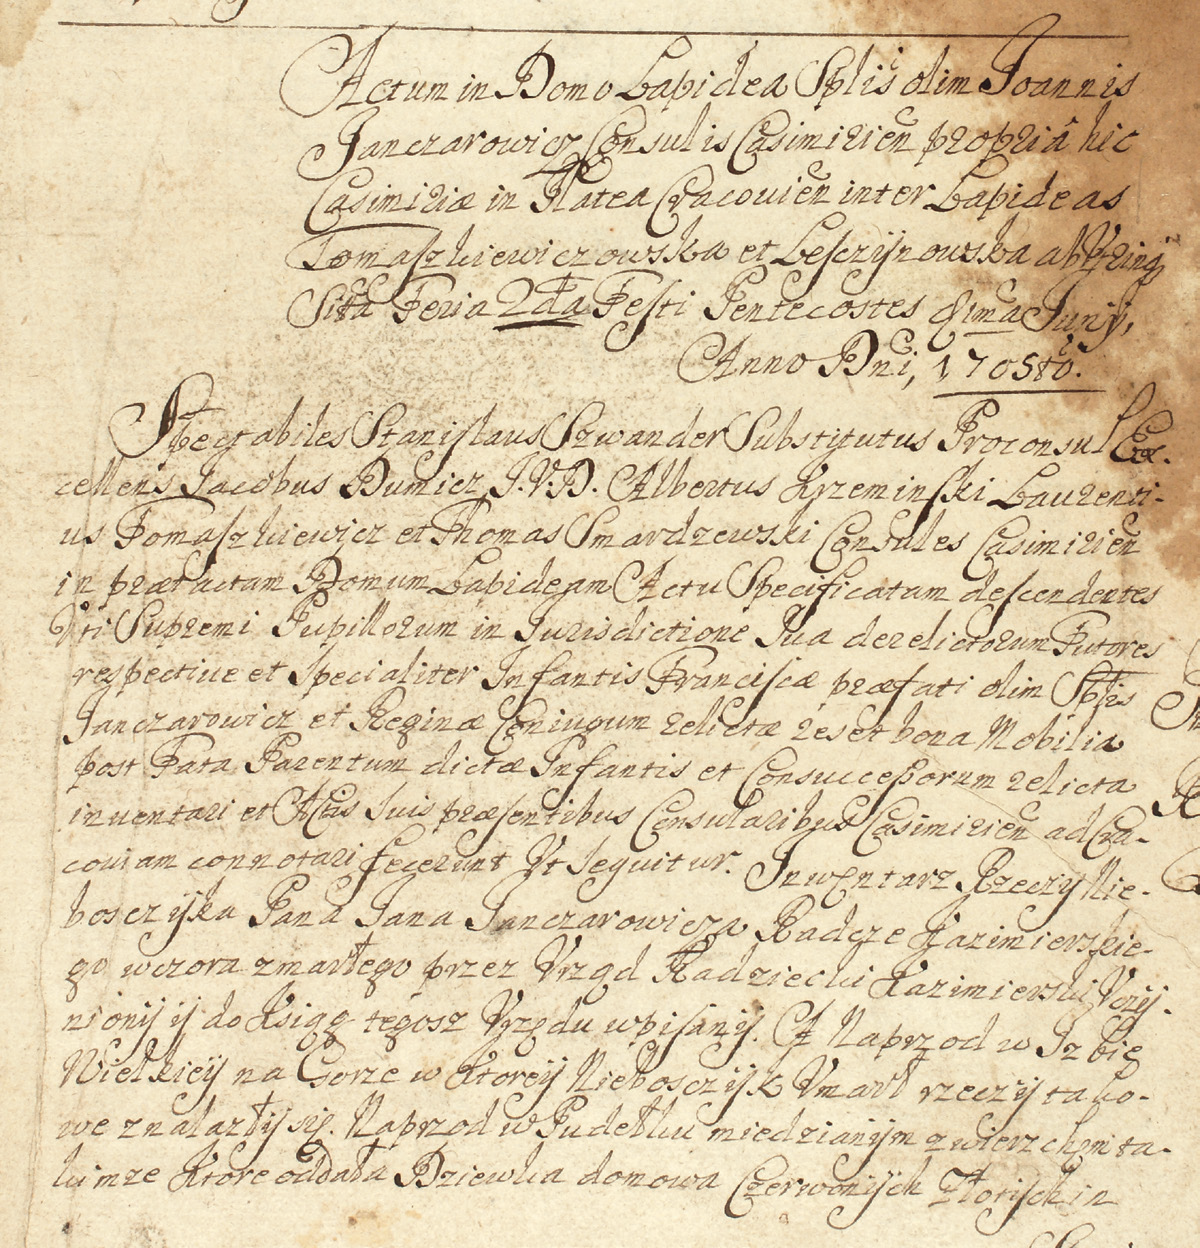 Actum in Domo Lapidea Splis olim Joannis
Janczarowicz Consulis Casimirień propria hic
Casimiriæ in Platea Cracovień inter Lapideas
Tomaszkiewiczowska et Leszczynowska ab
Sita Feria 2da Festi Pentecostes Junij,
Anno Dni, 1705to.
Spectabiles Stanislaus Szwander Substitutus Proconsul Ex-
cellens Jacobus Dumicz J.V.D. Albertus Krzeminski Laurenti-
us Tomaszkiewicz et Thomas Smardzewski Consules Casimirień
in præfactam Domum Lapideam Actu Specificatam descendentes
Uti Supremi Pupillorum in Jurisdictione sua derelictorum Tutores
respective et specialiter Infantis Franciscæ præfati olim Splis
Janczarowicz et Reginæ Coniugum relictæ res et bona Mobilia
post Fata Parentum dictæ Infantis et Consuccessorum relicta
inventari et Actis suis præsentibus Consularibus Casimirień ad Cra-
coviam connotari fecerunt Ut sequitur. Inwentarz Rzeczy Nie-
bosczyka Pana Jana Janczarowicza Radcze Kazimierskie-
go wczora zmarłego przez Vrząd Radziecki Kazimierski Vczy-
niony y do Ksiąg tegosz Vrzędu wpisany. A Naprzod w Izbie
Wielkiey na Gorze w Ktorey Niebosczyk Vmarł rzeczy tako-
we znalazły się. Naprzod w Pudełku miedzianym z wierzchem ta-
kimze Ktore oddała Dziewka domowa Czerwonych Złotych in